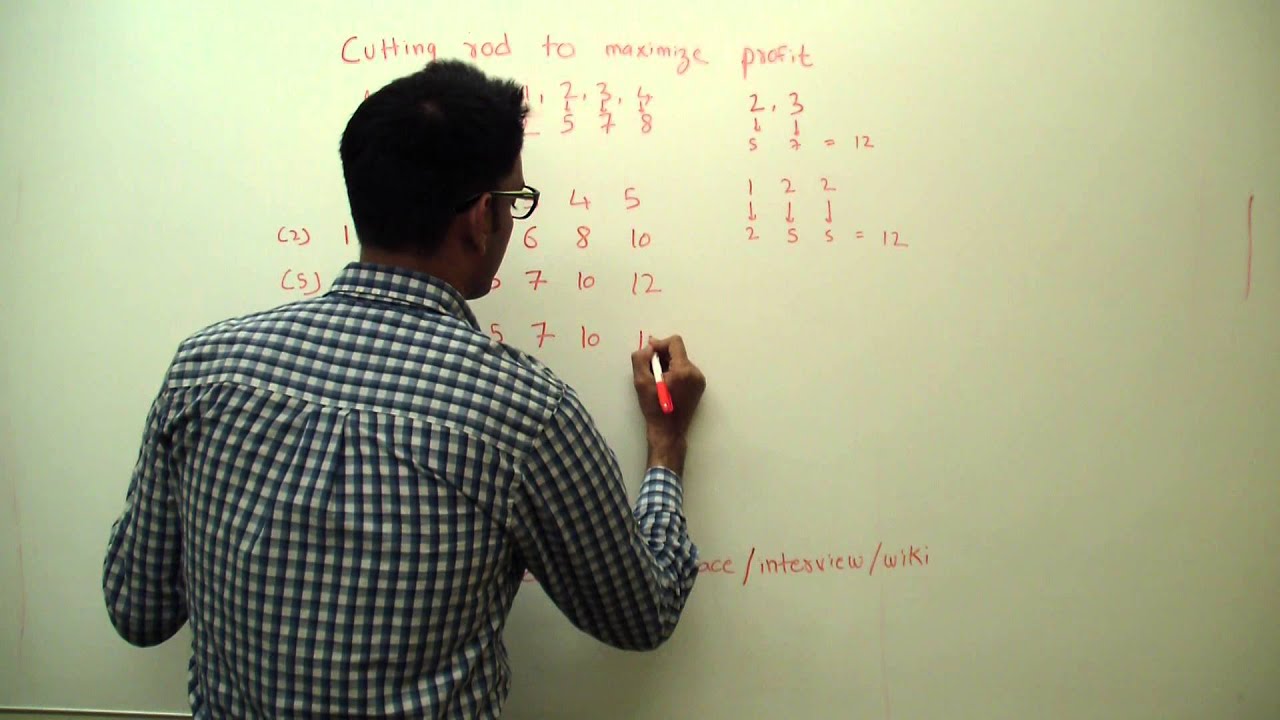 Cutting rod to maximize profit
1, 2, 3, 4
5 7 8
2, 3
5 7 = 12
1 2 2
2 5 5 = 12
4 5
(2) 1 6 8 10
(5) 5 7 10 12
5 7 10
/interview/wiki